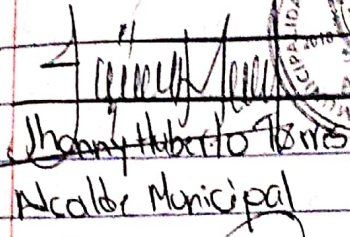 Jhonny Huberto Torres
Alcalde Municipal